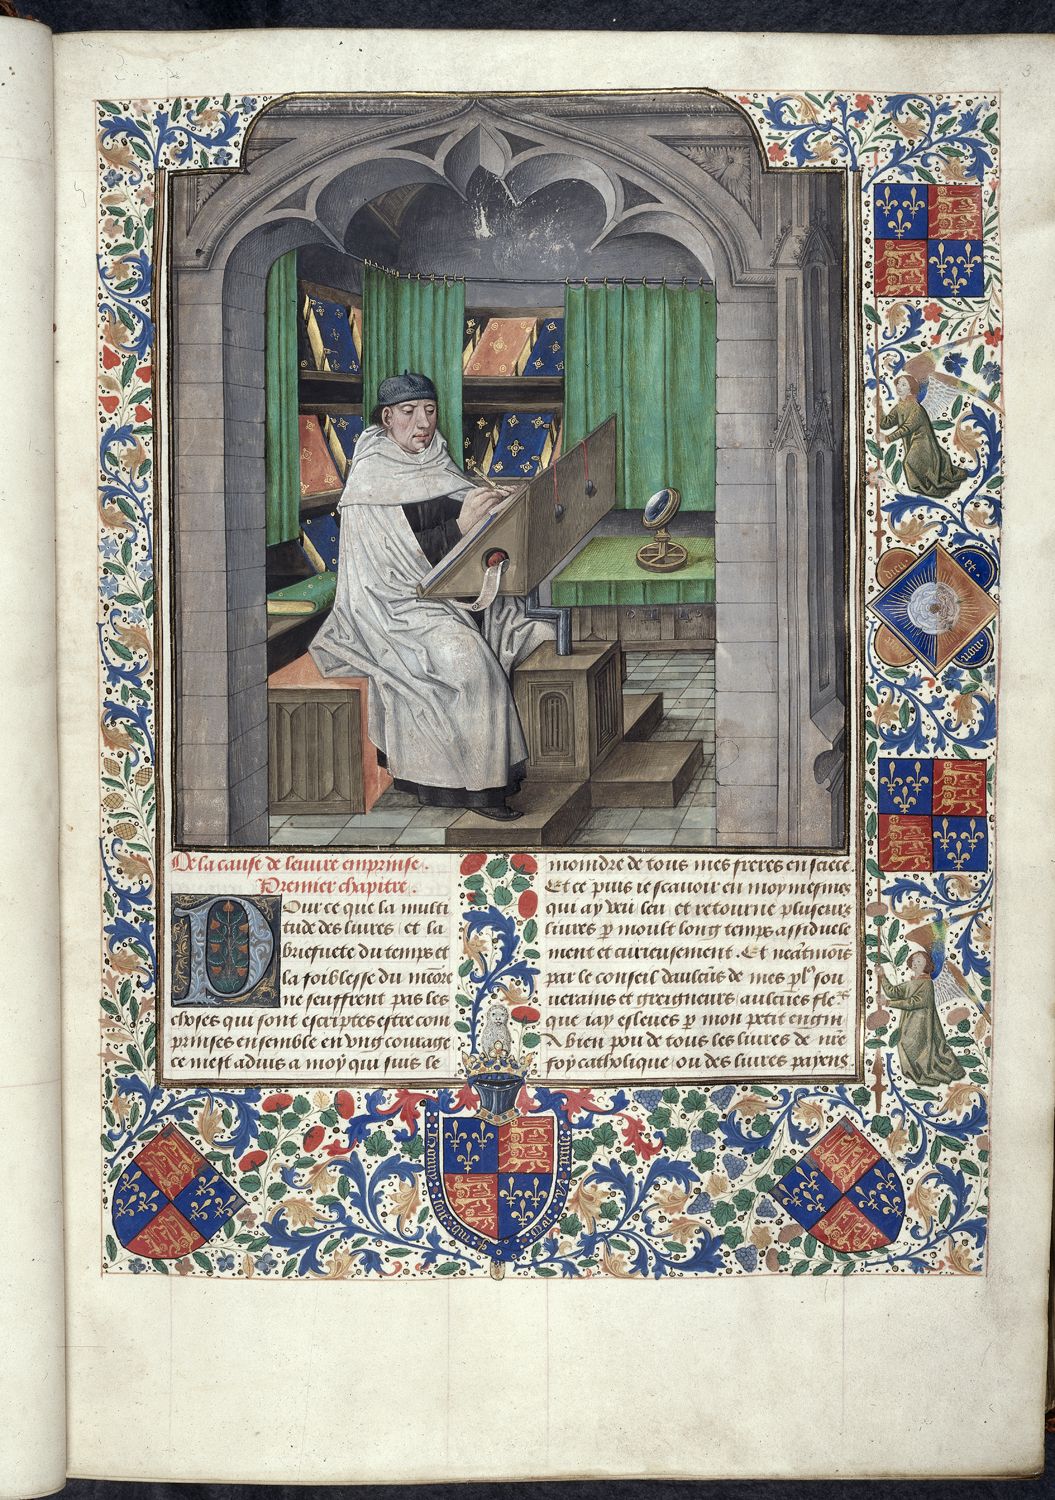 De la cause de leuure emprinse.
Premier chapitre.
Pour ce que la multi
tude des liures et la
briefuete du temps et
la foiblesse du memoire
ne seuffrent pas les
choses qui sont escriptes estre com
prinses ensemble en vng courage
ce mest aduis a moy qui suis le
moindre de tous mes freres en
Et ce puis ie scauoir en moy mesmes
qui ay veu leu et retourne pluseurs
liures p moult long temps assiduele
ment et curieusement. Et neatmoins
par le conseil daulcuns de mes sou
uerains et greigneurs aulcunes
que iay esleues p mon petit engin
A bien pou de tous les liures de nre
foy catholique ou des liures payens
dieu et